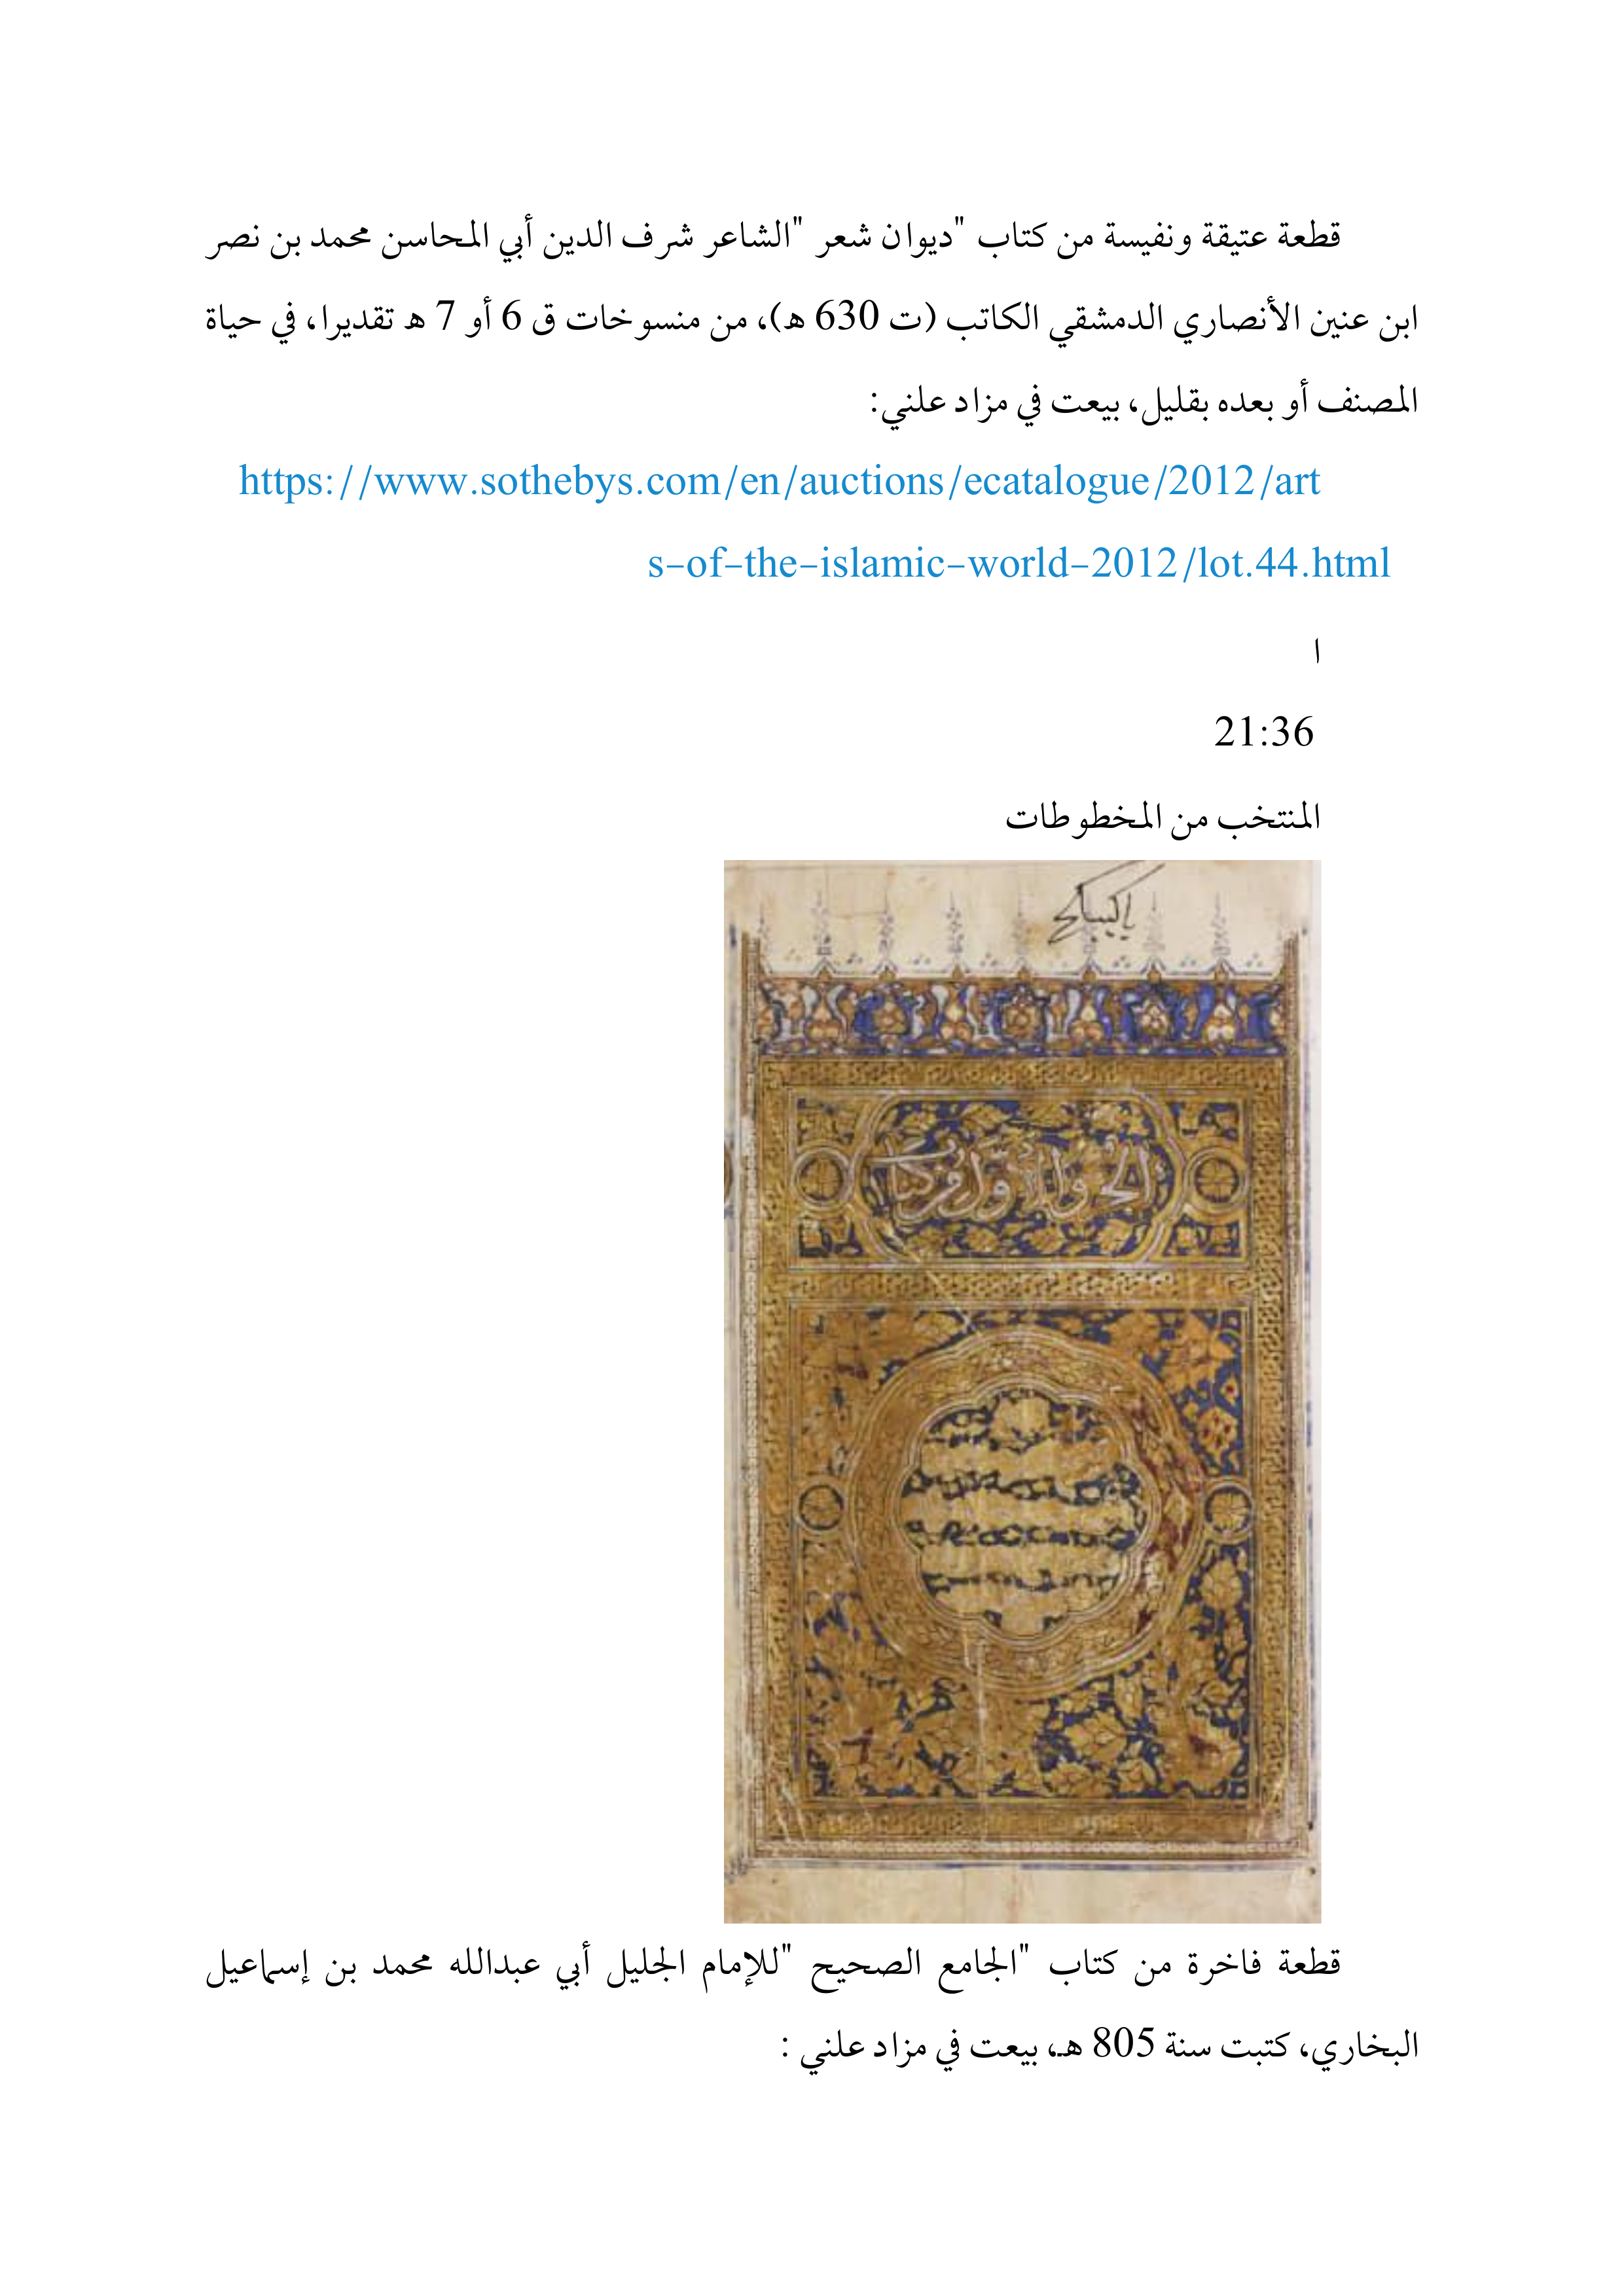 قطعة عتيقة ونفيسة من كتاب "ديوان شعر "الشاعر شرف الدين أبي المحاسن محمد بن نصر
ابن عنين الأنصاري الدمشقي الكاتب (ت 630 ه)، من منسوخات ق 6 أو 7 ه تقديرا، في حياة
المصنف أو بعده بقليل، بيعت في مزاد علني:
https://www.sothebys.com/en/auctions/ecatalogue/2012/art
s-of-the-islamic-world-2012/lot.44.html
ا
21:36
المنتخب من المخطوطات
قطعة فاخرة من كتاب "الجامع الصحيح "للإمام الجليل أبي عبدالله محمد بن إسماعيل
البخاري، كتبت سنة 805 هـ، بيعت في مزاد علني :